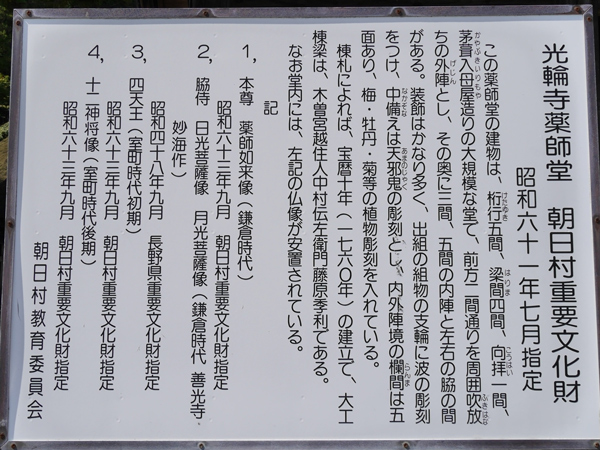 光輪寺薬師堂 朝日村重要文化財
昭和六十一年七月指定
この薬師堂の建物は、桁行五間、梁間四間、向拝一間、
茅葺入母屋造りの大規模な堂で、前方二間通りを周囲吹放
ちの外陣とし、その奥に三間、五間の内陣と左右の脇の間
がある。装飾はかなり多く、出組の組物の支輪に波の彫刻
をつけ、中備えは天邪鬼の彫刻とし、内外陣境の欄間は五
面あり、梅・牡丹・菊等の植物彫刻を入れている。
棟札によれば、宝暦十年（一七六〇年）の建立で、大工
棟梁は、木曽宮越住人中村伝左衛門藤原季利である。
なお堂内には、左記の仏像が安置されている。
記
1，本尊 薬師如来像（鎌倉時代）
昭和六十三年九月 朝日村重要文化財指定
2，脇侍 日光菩薩像 月光菩薩像（鎌倉時代 善光寺、
妙海作）
昭和四十八年九月 長野県重要文化財指定
3，四天王（室町時代初期）
昭和六十三年九月 朝日村重要文化財指定
4，十二神将像（室町時代後期）
昭和六十三年九月 朝日村重要文化財指定
朝日村教育委員会